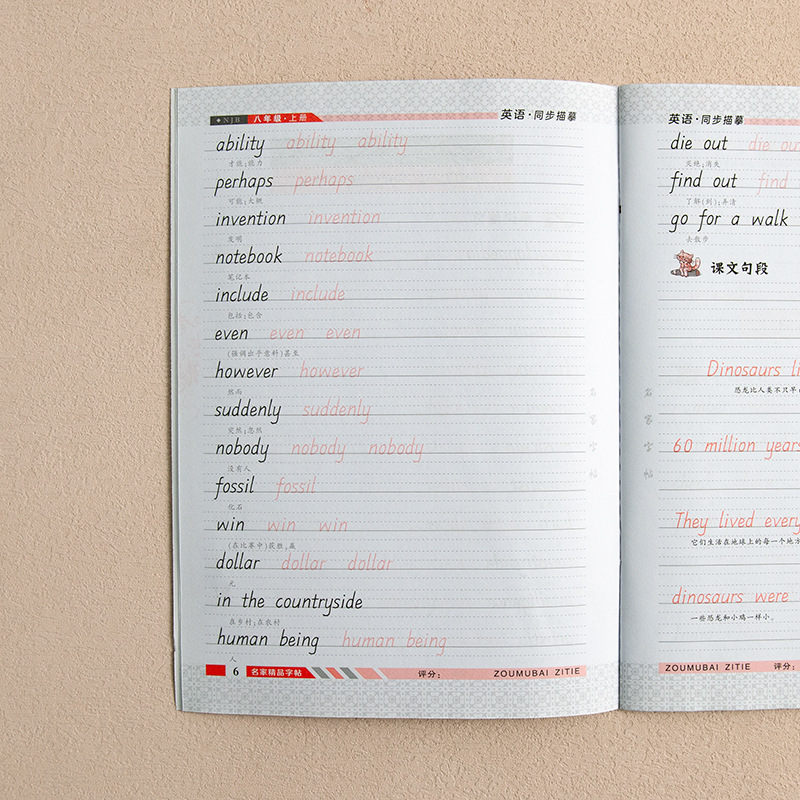 NJB 八年级·上册 英语·同步描摹
ability ability ability
才能;能力
perhaps perhaps
可能;大概
invention invention
发明
notebook notebook
笔记本
include include
包括;包含
even even even
(强调出乎意料)甚至
however however
然而
suddenly suddenly
突然;忽然
nobody nobody nobody
没有人
fossil fossil
化石
win win win
(在比赛中)获胜,赢
dollar dollar dollar
元
in the countryside
在乡村;在农村
human being human being
人
6 名家精品字帖 评分: ZOUMUBAI ZITIE
名家字帖
英语·同步描摹
die out die out
灭绝;消失
find out find
了解(到);弄清
go for a walk
去散步
课文句段
Dinosaurs li
恐龙比人类不只早
60 million years
They lived every
它们生活在地球上的每一个地方
dinosaurs were
一些恐龙和小鸡一样小。
名家字帖
ZOUMUBAI ZITIE 评分: